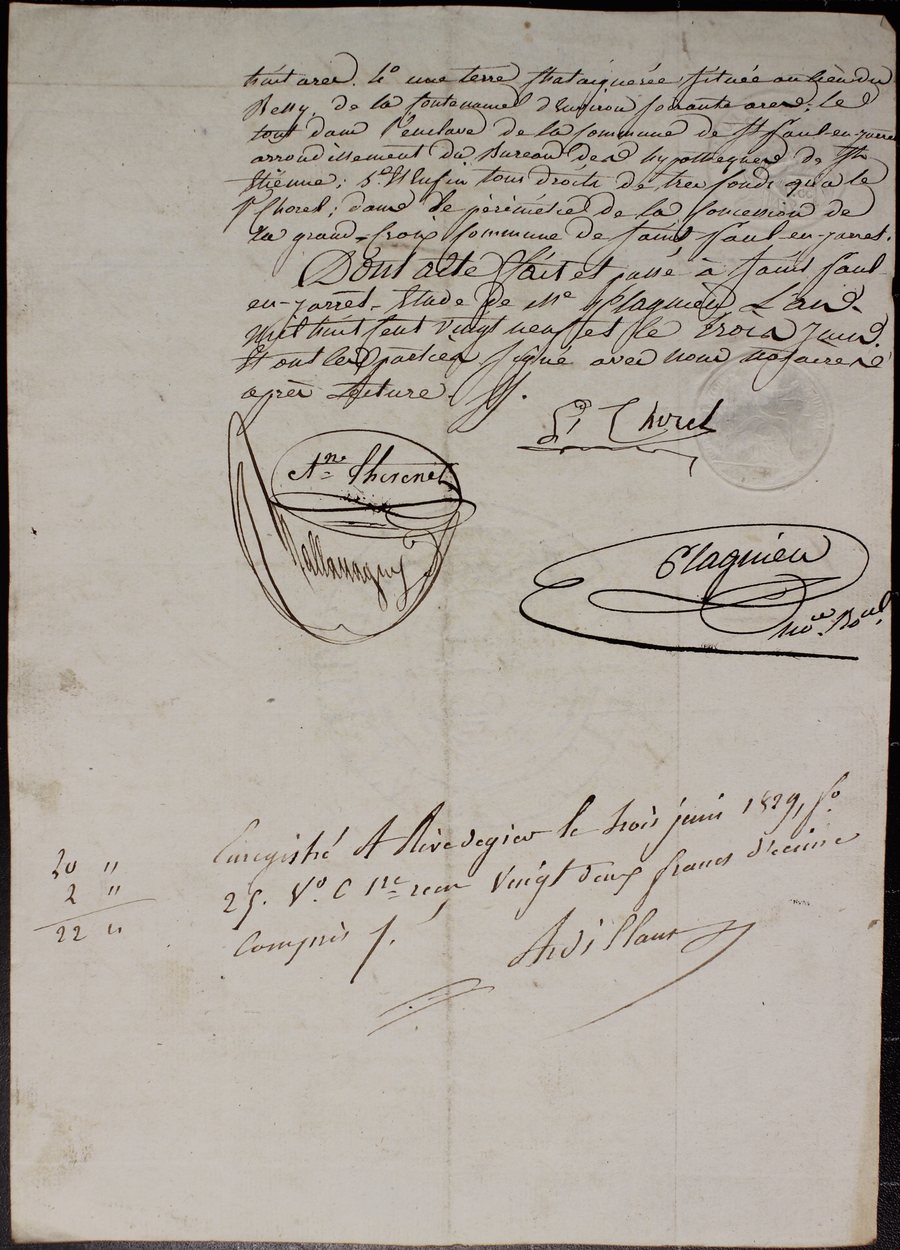 huit ares. 4o une terre Chataigneréé, située au lieu du
Bessy, de la Contenance d'Environ soixante ares; le
tout dans l'enclave de la Commune de St Paul-en-jarret
arrondissement du Bureau des hypothèques de St
Etienne; 5o Et Enfin tous droits de tres fonds qu'a le
Sr Chorel; dans le périmètre de la Concession de
La grand-Croix Commune de Saint-Paul-en-jarret.
Dont acte Fait et passé à Saint Paul
en-jarret-Etude de Me Plagnieu L'an
Mil huit Cent vingt neuf et le Trois Juin.
Et ont les parties signé avec nous notaires
après Lecture
Chorel
Ane Thevenet
Plagnieu
Nore Roal
Enregistré A Rivedegier le trois juin 1829, fo
25. Vo. C 1re reçu Vingt deux francs décime
Compris
20 "
2 "
22 "